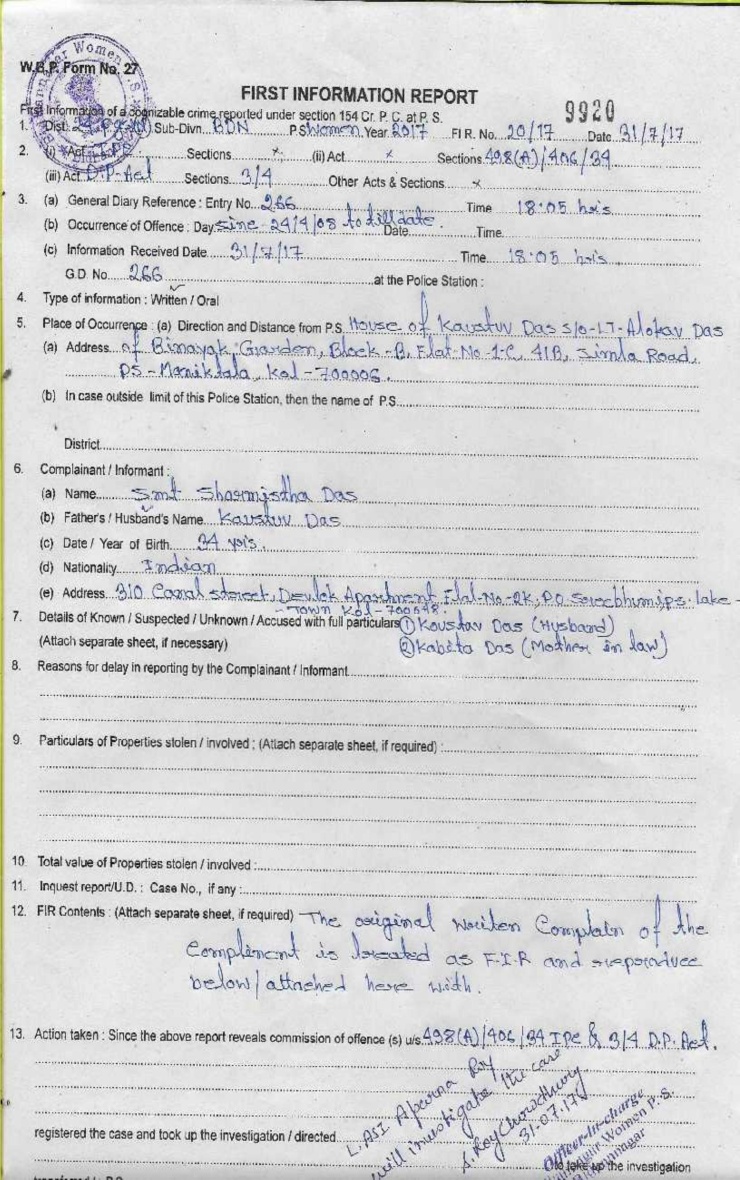 W.B.P. Form No. 27
FIRST INFORMATION REPORT
First Information of a cognizable crime reported under section 154 Cr. P. C. at P. S.
9920
1. Dist. Sub-Divn. BDN P.S Women Year 2017 FI R. No. 20/17 Date 31/7/17
2. (i) Act I.P.C Sections x, (ii) Act x Sections 498(A)/406/34
(iii) Act D.P-Act Sections 3/4 Other Acts & Sections x
3. (a) General Diary Reference : Entry No 266 Time 18:05 hrs
(b) Occurrence of Offence : Day sinc 24/4/08 to till date Date Time
(c) Information Received Date 31/7/17 Time 18:05 hrs
G.D. No. 266 at the Police Station :
4. Type of information : Written / Oral
5. Place of Occurrence : (a) Direction and Distance from P.S. House of Kaustuv Das S/o-LT-Alokav Das
(a) Address of Binayak Garden, Block-B, Flat-No-1-C, 41B, Simla Road,
PS-Maniktala, Kol-700006.
(b) In case outside limit of this Police Station, then the name of P.S.
District
6. Complainant / Informant :
(a) Name Smt Sharmistha Das
(b) Father's / Husband's Name Kaustuv Das
(c) Date / Year of Birth 34 yrs.
(d) Nationality Indian
(e) Address 310 Canal street, Devlok Apartment Flat-No-2K, P.O Sreebhumi, ps. Lake-
Town Kol-700048.
7. Details of Known / Suspected / Unknown / Accused with full particulars ① Koustav Das (Husband)
(Attach separate sheet, if necessary) ② Kabita Das (Mother in law)
8. Reasons for delay in reporting by the Complainant / Informant
9. Particulars of Properties stolen / involved ; (Attach separate sheet, if required) :
10. Total value of Properties stolen / involved :
11. Inquest report/U.D. : Case No., if any :
12. FIR Contents : (Attach separate sheet, if required) The original written Complain of the
Complinent is treated as F.I.R and reproduce
below/attached here with.
13. Action taken : Since the above report reveals commission of offence (s) u/s 498(A)/406/34 IPC & 3/4 D.P. Act.
L.ASI Aparna Roy
will investigate the case
S. RoyChowdhury
31.07.17
Officer-in-charge
Women P. S.
registered the case and took up the investigation / directed
to take up the investigation